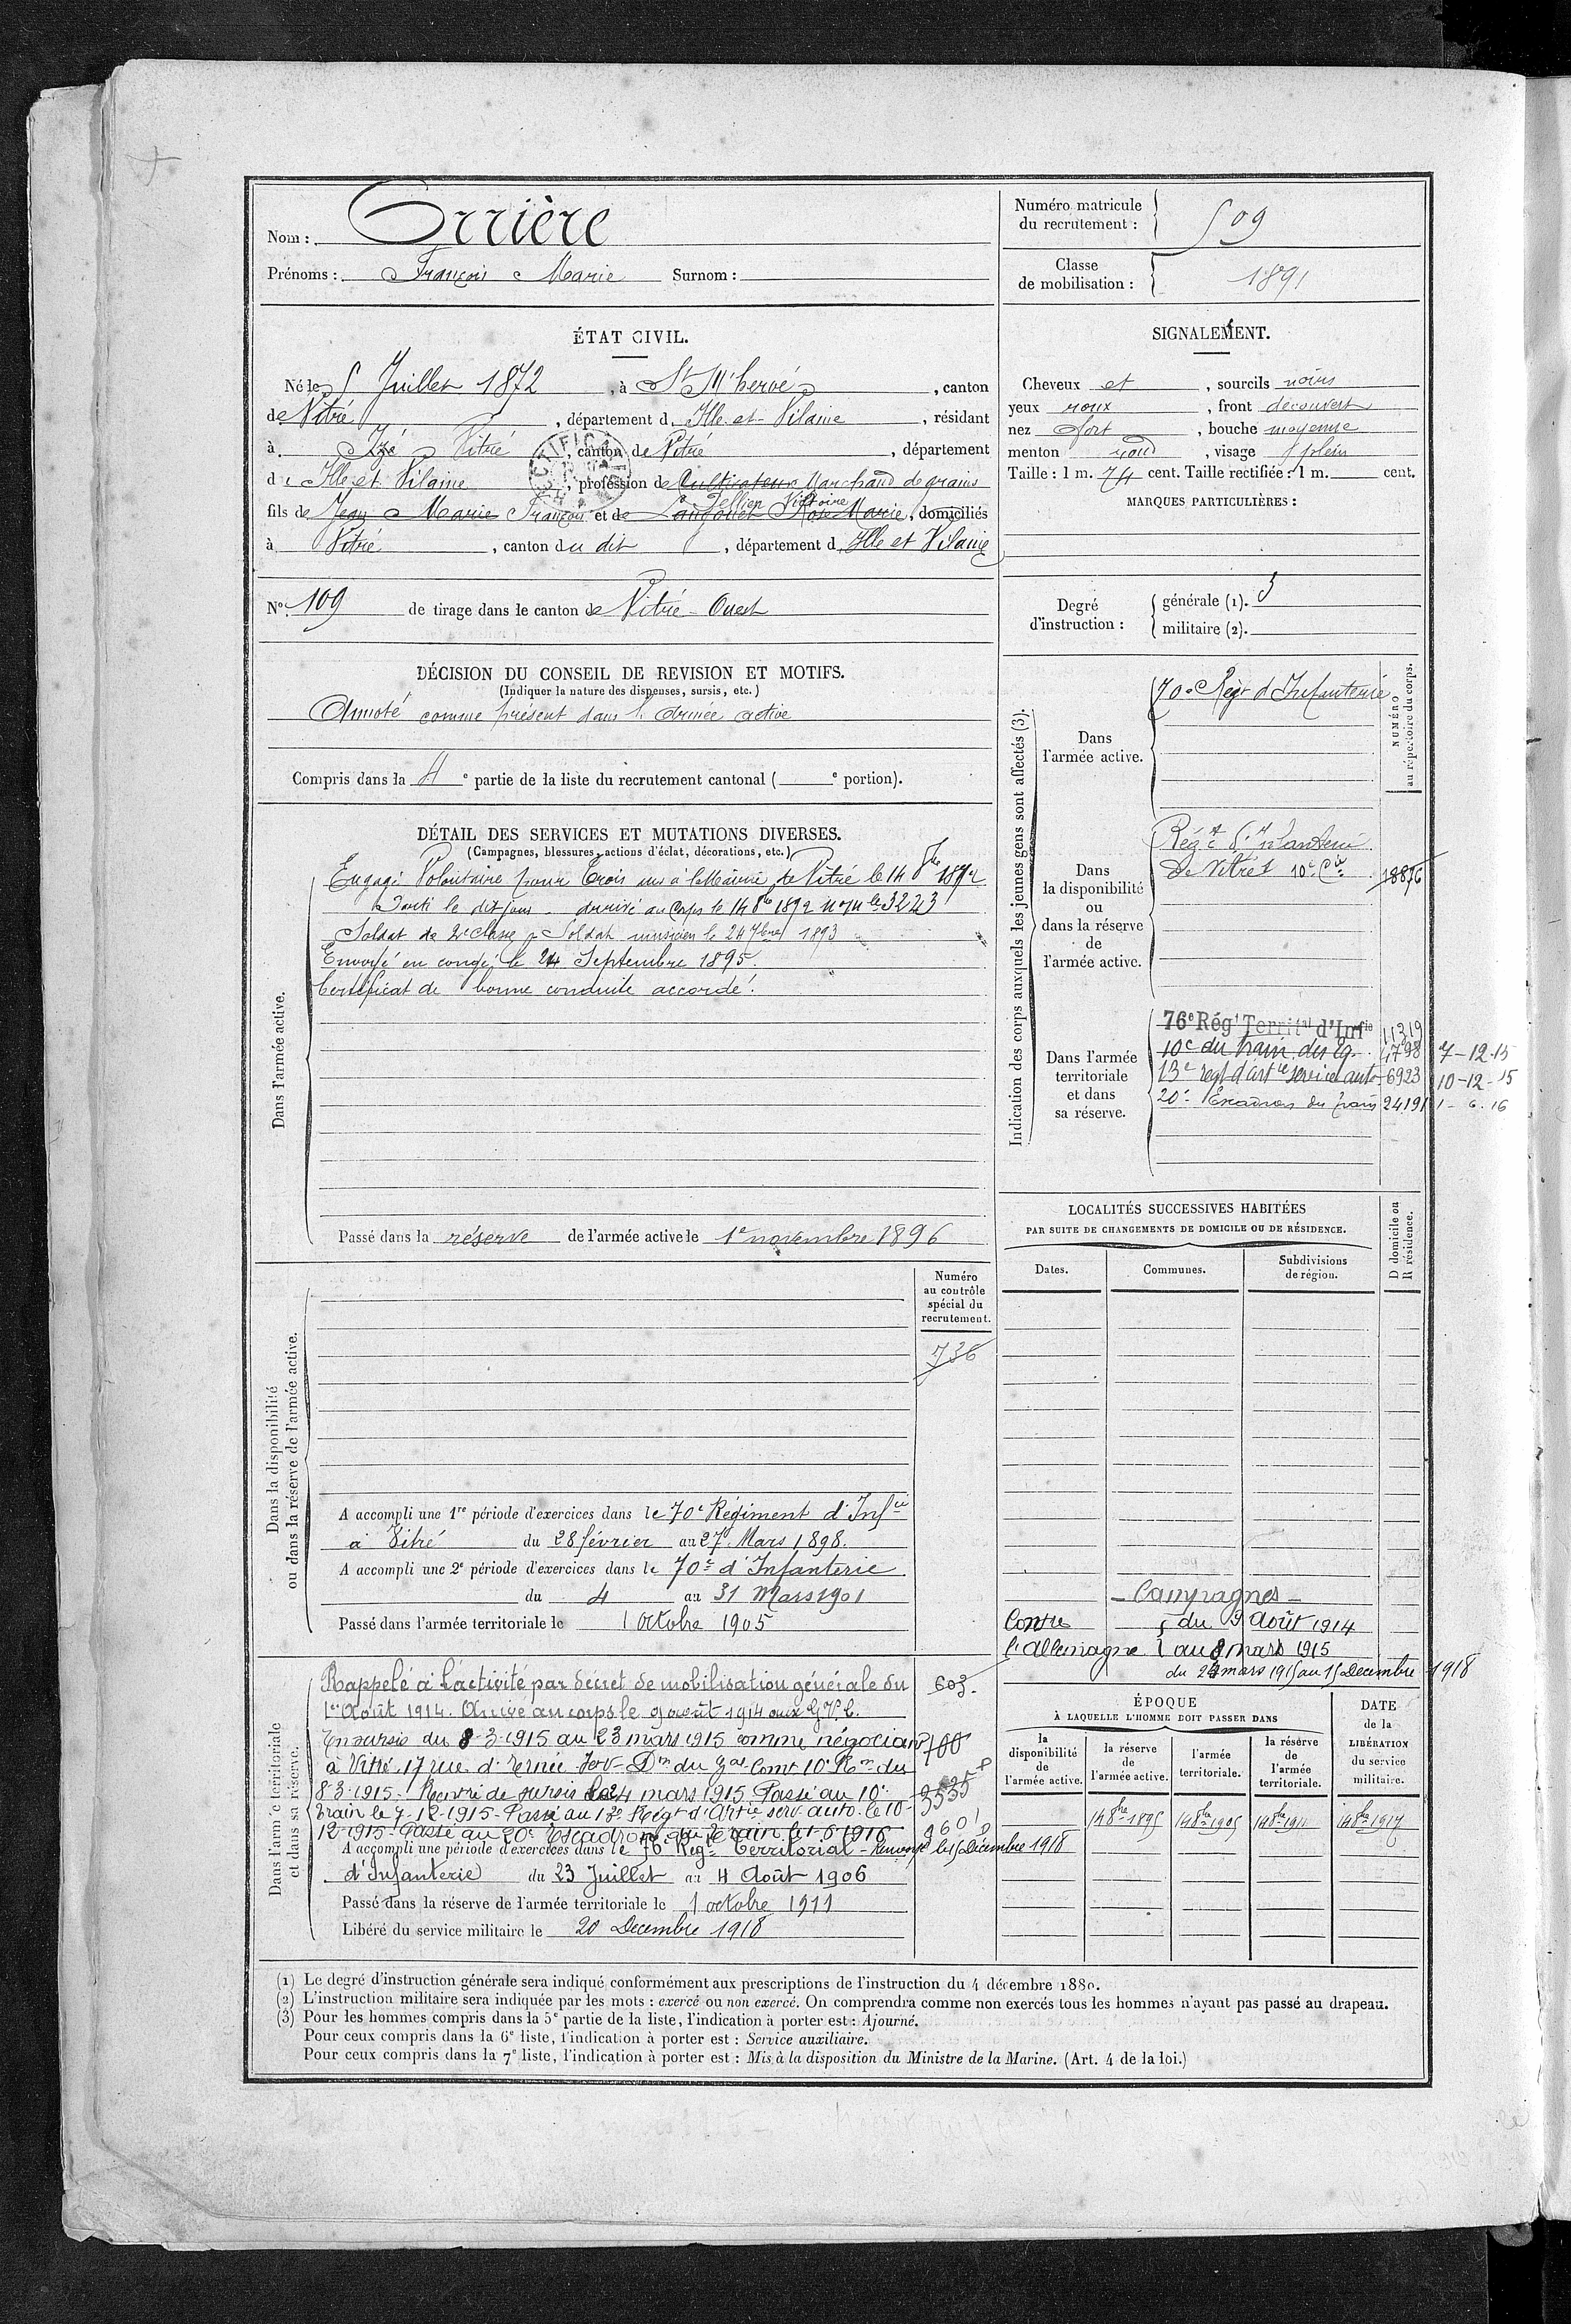 Nom : Orrière
Prénoms : François Marie Surnom :
Numéro matricule du recrutement : 509
Classe de mobilisation : 1891
ÉTAT CIVIL.
Né le 5 Juillet 1872, à St M'hervé, canton
de Vitré, département d Ille-et-Vilaine, résidant
à Izé Vitré, canton de Vitré, département
d Ille et Vilaine, profession de Cultivateur Marchand de grains
Tellien Victoire
fils de Jean Marie François et de Langouet Rose Marie, domiciliés
à Vitré, canton du dit, département d Ille et Vilaine
N° 109 de tirage dans le canton de Vitré-Ouest
DÉCISION DU CONSEIL DE REVISION ET MOTIFS.
(Indiquer la nature des dispenses, sursis, etc.)
Annoté comme présent dans l'Armée active
Compris dans la 4e partie de la liste du recrutement cantonal ( e portion).
SIGNALEMENT.
Cheveux et, sourcils noirs
yeux roux, front découvert
nez fort, bouche moyenne
menton rond, visage plein
Taille : 1 m. 74 cent. Taille rectifiée : 1 m. cent.
MARQUES PARTICULIÈRES :
Degré d'instruction : générale (1). 3
militaire (2).
DÉTAIL DES SERVICES ET MUTATIONS DIVERSES.
(Campagnes, blessures, actions d'éclat, décorations, etc.)
Dans l'armée active.
Engagé Volontaire pour trois ans à la Mairie de Vitré le 14 8bre 1892
Parti le dit jour. Arrivé au Corps le 14 8bre 1892 n° mle 3223
Soldat de 2e classe Soldat musicien le 24 7bre 1893
Envoyé en congé le 24 Septembre 1895.
Certificat de bonne conduite accordé.
Passé dans la réserve de l'armée active le 1e novembre 1896
Indication des corps auxquels les jeunes gens sont affectés (3).
NUMÉRO au répertoire du corps.
Dans l'armée active.
70e Régt d'Infanterie
Dans la disponibilité ou dans la réserve de l'armée active.
Régt d'Infanterie
de Vitré 10e Cie 18876
Dans l'armée territoriale et dans sa réserve.
76e Régt Territal d'Infie 11319
10e du train des Eq. 4798 7-12-15
13e regt d'artie service auto 6923 10-12-15
20e Escadron du train 24191 1-6-16
LOCALITÉS SUCCESSIVES HABITÉES
PAR SUITE DE CHANGEMENTS DE DOMICILE OU DE RÉSIDENCE.
Dates. Communes. Subdivisions de région. D domicile ou R résidence.
Campagnes
Contre du 9 Août 1914
l'Allemagne au 8 mars 1915
du 24 mars 1915 au 15 Décembre 1918
Dans la disponibilité ou dans la réserve de l'armée active.
Numéro au contrôle spécial du recrutement.
736
A accompli une 1re période d'exercices dans le 70e Régiment d'Infie
à Vitré du 28 février au 27 Mars 1898.
A accompli une 2e période d'exercices dans le 70e d'Infanterie
du 4 au 31 Mars 1901
Passé dans l'armée territoriale le 1 Octobre 1905
Dans l'armée territoriale et dans sa réserve.
Rappelé à l'activité par décret de mobilisation générale du 603
1er Août 1914. Arrivé au corps le 9 août 1914 aux G.V.C.
En sursis du 8-3-1915 au 23 mars 1915 comme négociant 700
à Vitré, 17 rue d'Ernée Don du Gal Comt 10e Ron du
8-3-1915. Rentré de sursis le 24 mars 1915 Passé au 10e 3535
train le 7-12-1915. Passé au 13e Régt d'Artie serv. auto. le 10-
12-1915. Passé au 20e Escadron du train le 1-6-1916
A accompli une période d'exercices dans le 76e Régt Territorial - Renvoyé le 15 Décembre 1918
d'Infanterie du 23 Juillet au 4 Août 1906
Passé dans la réserve de l'armée territoriale le 1 octobre 1911
Libéré du service militaire le 20 Décembre 1918
ÉPOQUE
À LAQUELLE L'HOMME DOIT PASSER DANS
la disponibilité de l'armée active. la réserve de l'armée active. l'armée territoriale. la réserve de l'armée territoriale.
DATE de la LIBÉRATION du service militaire.
14 8bre 1895 14 8bre 1905 14 8bre 1911 14 8bre 1917
(1) Le degré d'instruction générale sera indiqué conformément aux prescriptions de l'instruction du 4 décembre 1880.
(2) L'instruction militaire sera indiquée par les mots : exercé ou non exercé. On comprendra comme non exercés tous les hommes n'ayant pas passé au drapeau.
(3) Pour les hommes compris dans la 5e partie de la liste, l'indication à porter est : Ajourné.
Pour ceux compris dans la 6e liste, l'indication à porter est : Service auxiliaire.
Pour ceux compris dans la 7e liste, l'indication à porter est : Mis à la disposition du Ministre de la Marine. (Art. 4 de la loi.)